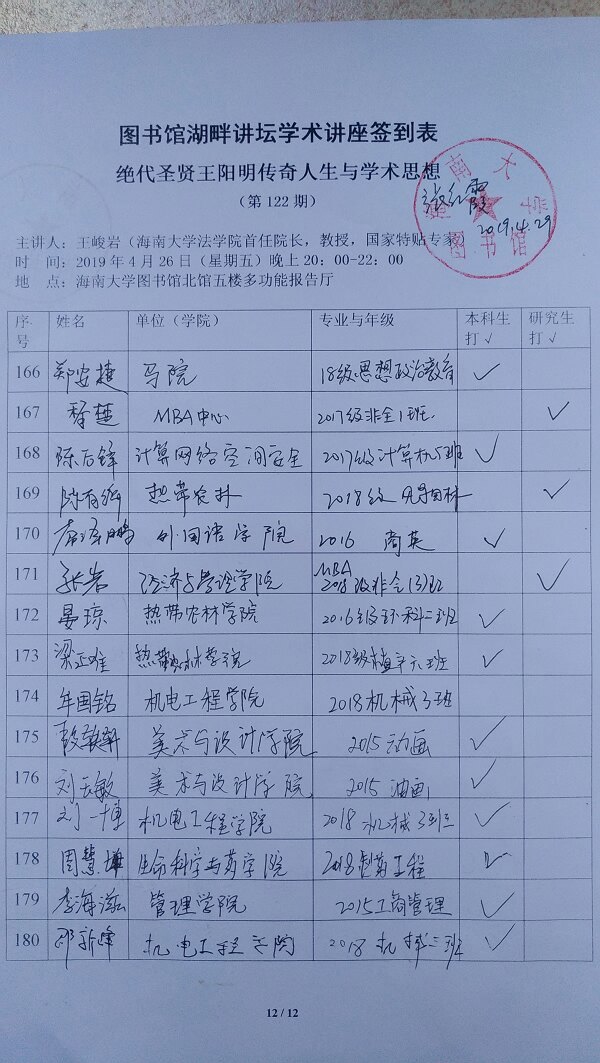 图书馆湖畔讲坛学术讲座签到表
绝代圣贤王阳明传奇人生与学术思想
（第 122 期）
海南大学
图书馆
张红霞
2019.4.29
主讲人：王峻岩（海南大学法学院首任院长，教授，国家特贴专家）
时　间：2019 年 4 月 26 日（星期五）晚上 20：00-22：00
地　点：海南大学图书馆北馆五楼多功能报告厅
序号 姓名 单位（学院） 专业与年级 本科生打√ 研究生打√
166 郑安捷 马院 18级思想政治教育 √
167 楚 MBA中心 2017级非全1班. √
168 陈后锋 计算网络空间安全 2017级计算机5班 √
169 陈 热带农林 2018级 园林 √
170 鹏 外国语学院 2016 商英 √
171 张岩 经济与管理学院 MBA 2018级非全(3)班 √
172 晏琼 热带农林学院 2016级环科二班 √
173 梁正唯 热带农林学院 2018级植平六班 √
174 年国铭 机电工程学院 2018机械3班
175 美术与设计学院 2015动画 √
176 刘玉敏 美术与设计学院 2015油画 √
177 刘一博 机电工程学院 2018 机械3班 √
178 周慧坤 生命科学与药学院 2018制药工程 √
179 李海滋 管理学院 2015工商管理 √
180 邓新峰 机电工程学院 2018 机械三班 √
12 / 12